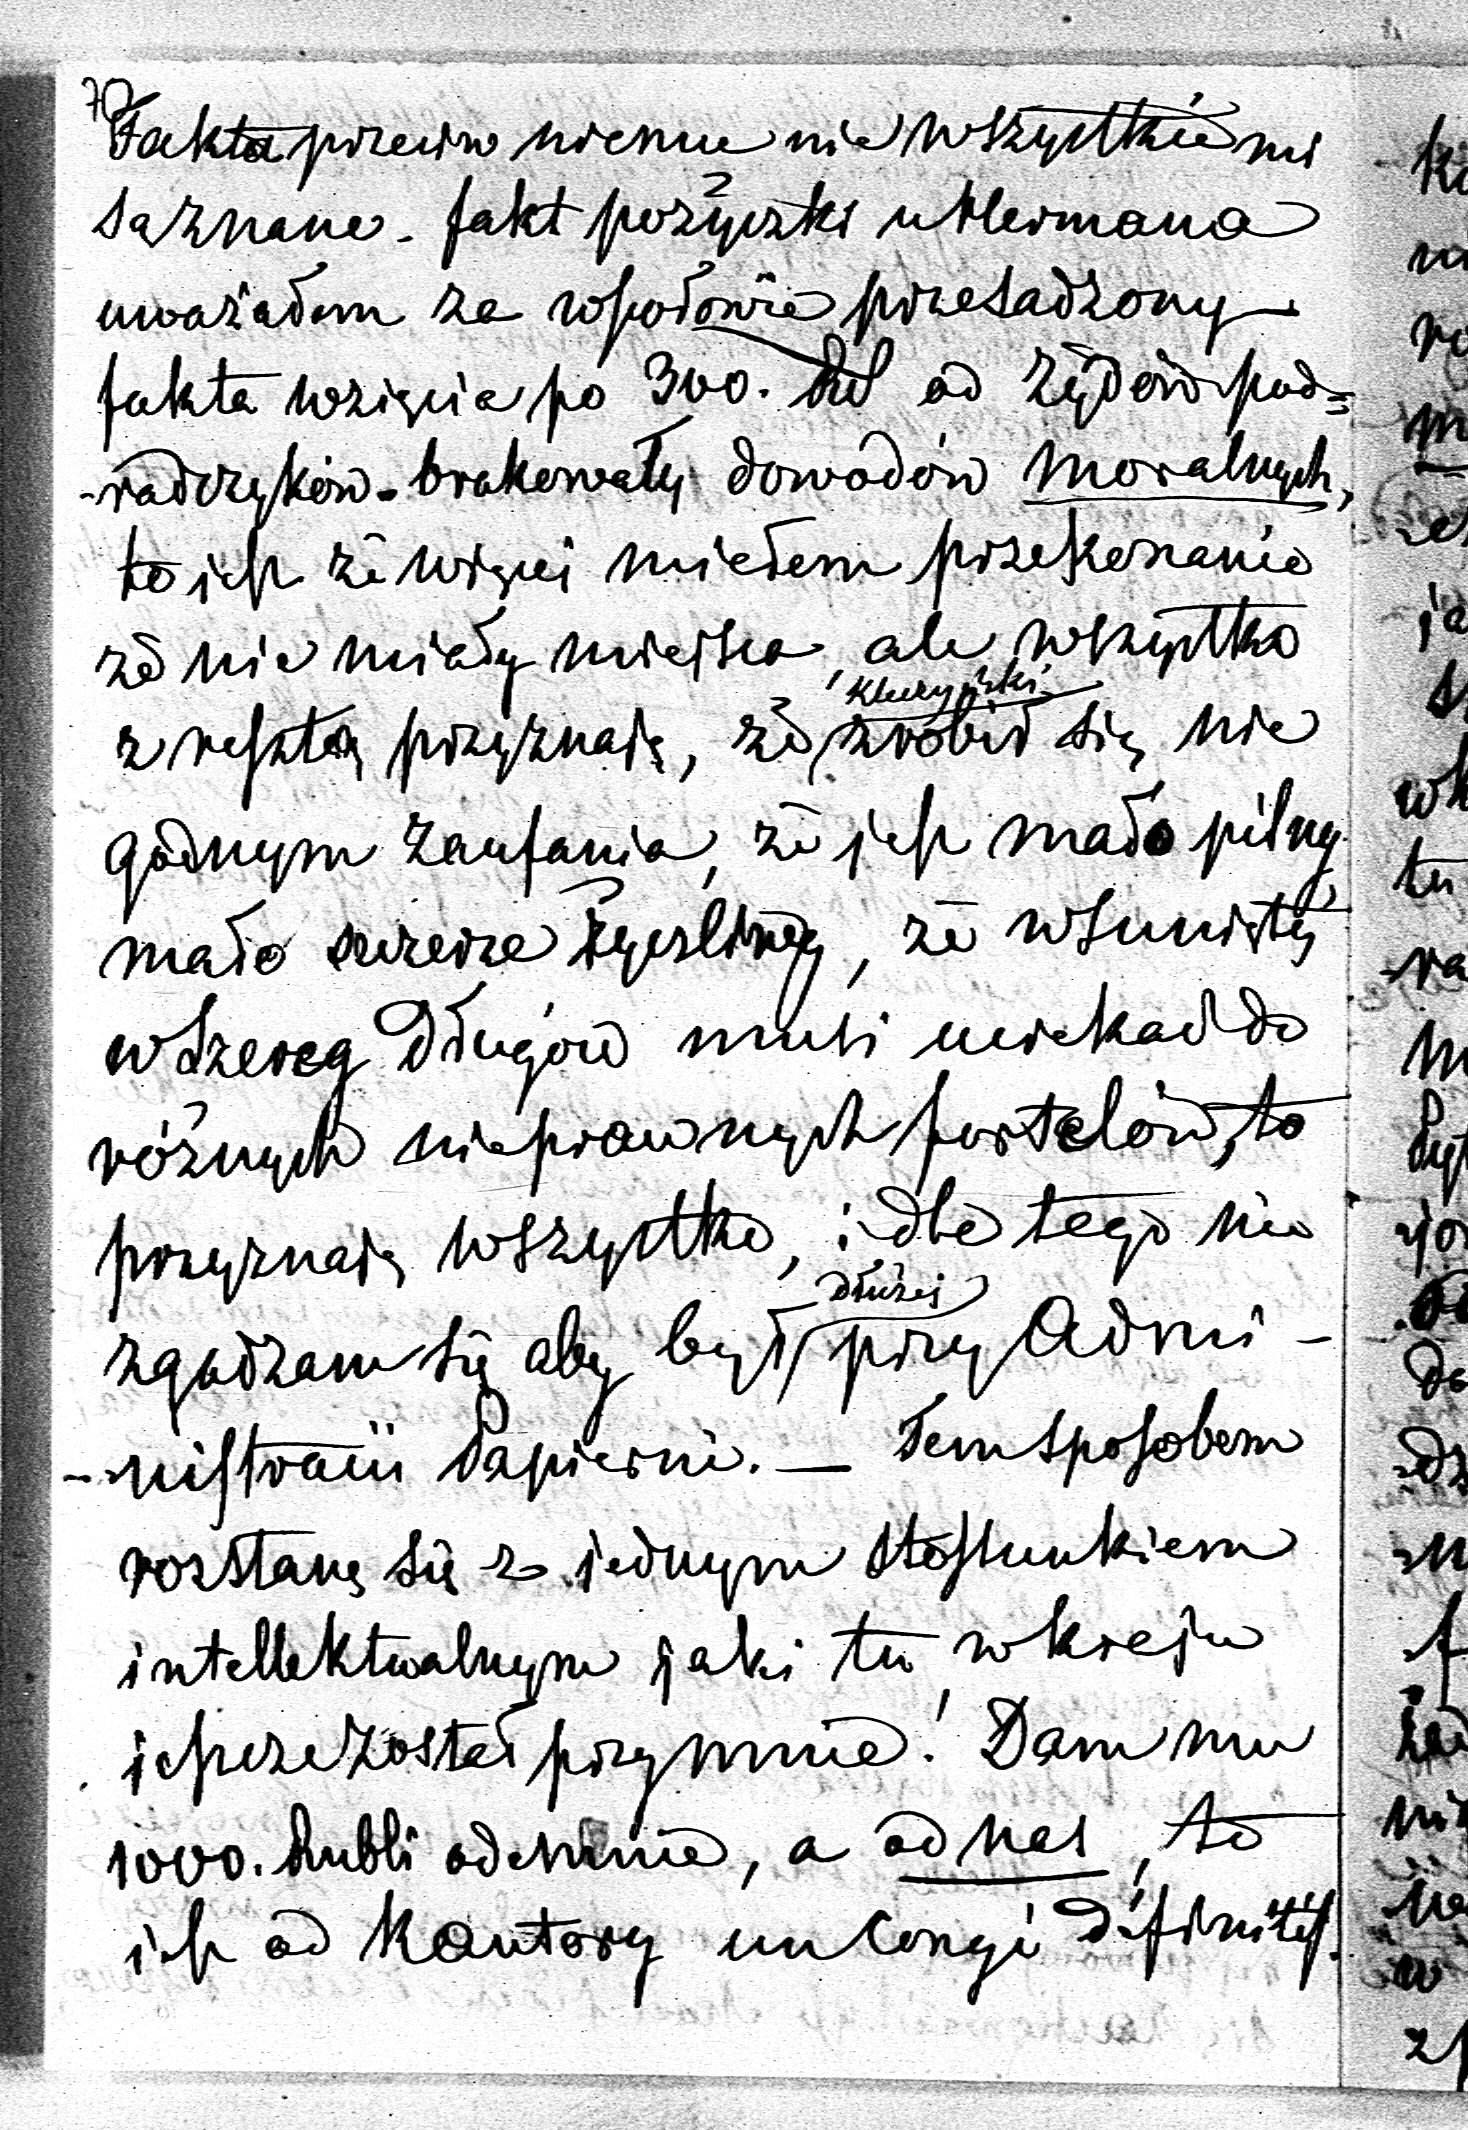 70
Fakta przeciw niemu nie wszystkie mi
są znane. fakt pożyczki u Hermana
uważałem za w połowie przesadzony
fakta wzięcia po 300. Rub od Żydów pod=
-radczyków. brakowały dowodów moralnych,
to jest że więcej miałem przekonanie
że nie miały miejsca, ale wszystko
z resztą przyznaję, że Kluczyński zrobił się nie
godnym zaufania, że jest mało pilny
mało szczerze życzliwy, że wsunięty
w szereg długów musi uciekać do
różnych nieprawnych fortelów, to
przyznaję wszystko, i dla tego nie
zgadzam się aby był dłużej przy Admi-
-nistracii Papierni. — Tem sposobem
rozstanę się z jednym stosunkiem
intellektualnym jaki tu w kraju
jeszcze został przy mnie! Dam mu
1000. Rubli odemnie, a od nas, to
jest od Kantory un Congé définitif.